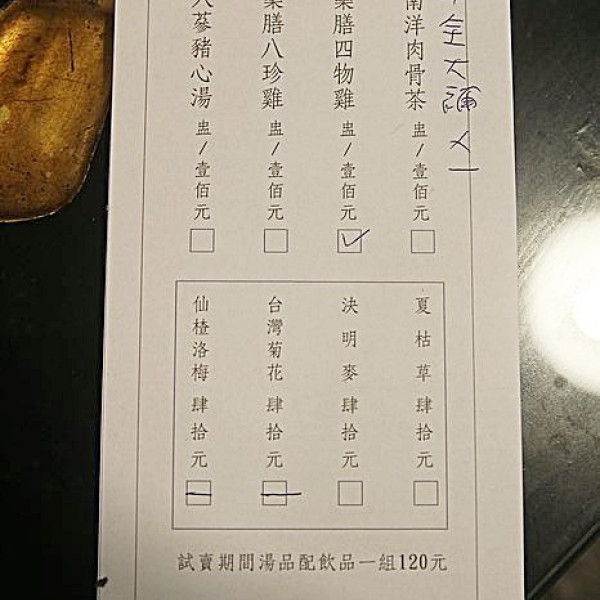 南洋肉骨茶 盅/壹佰元
藥膳四物雞 盅/壹佰元
藥膳八珍雞 盅/壹佰元
人蔘豬心湯 盅/壹佰元
夏枯草 肆拾元
決明麥 肆拾元
台灣菊花 肆拾元
仙楂洛梅 肆拾元
試賣期間湯品配飲品一組120元